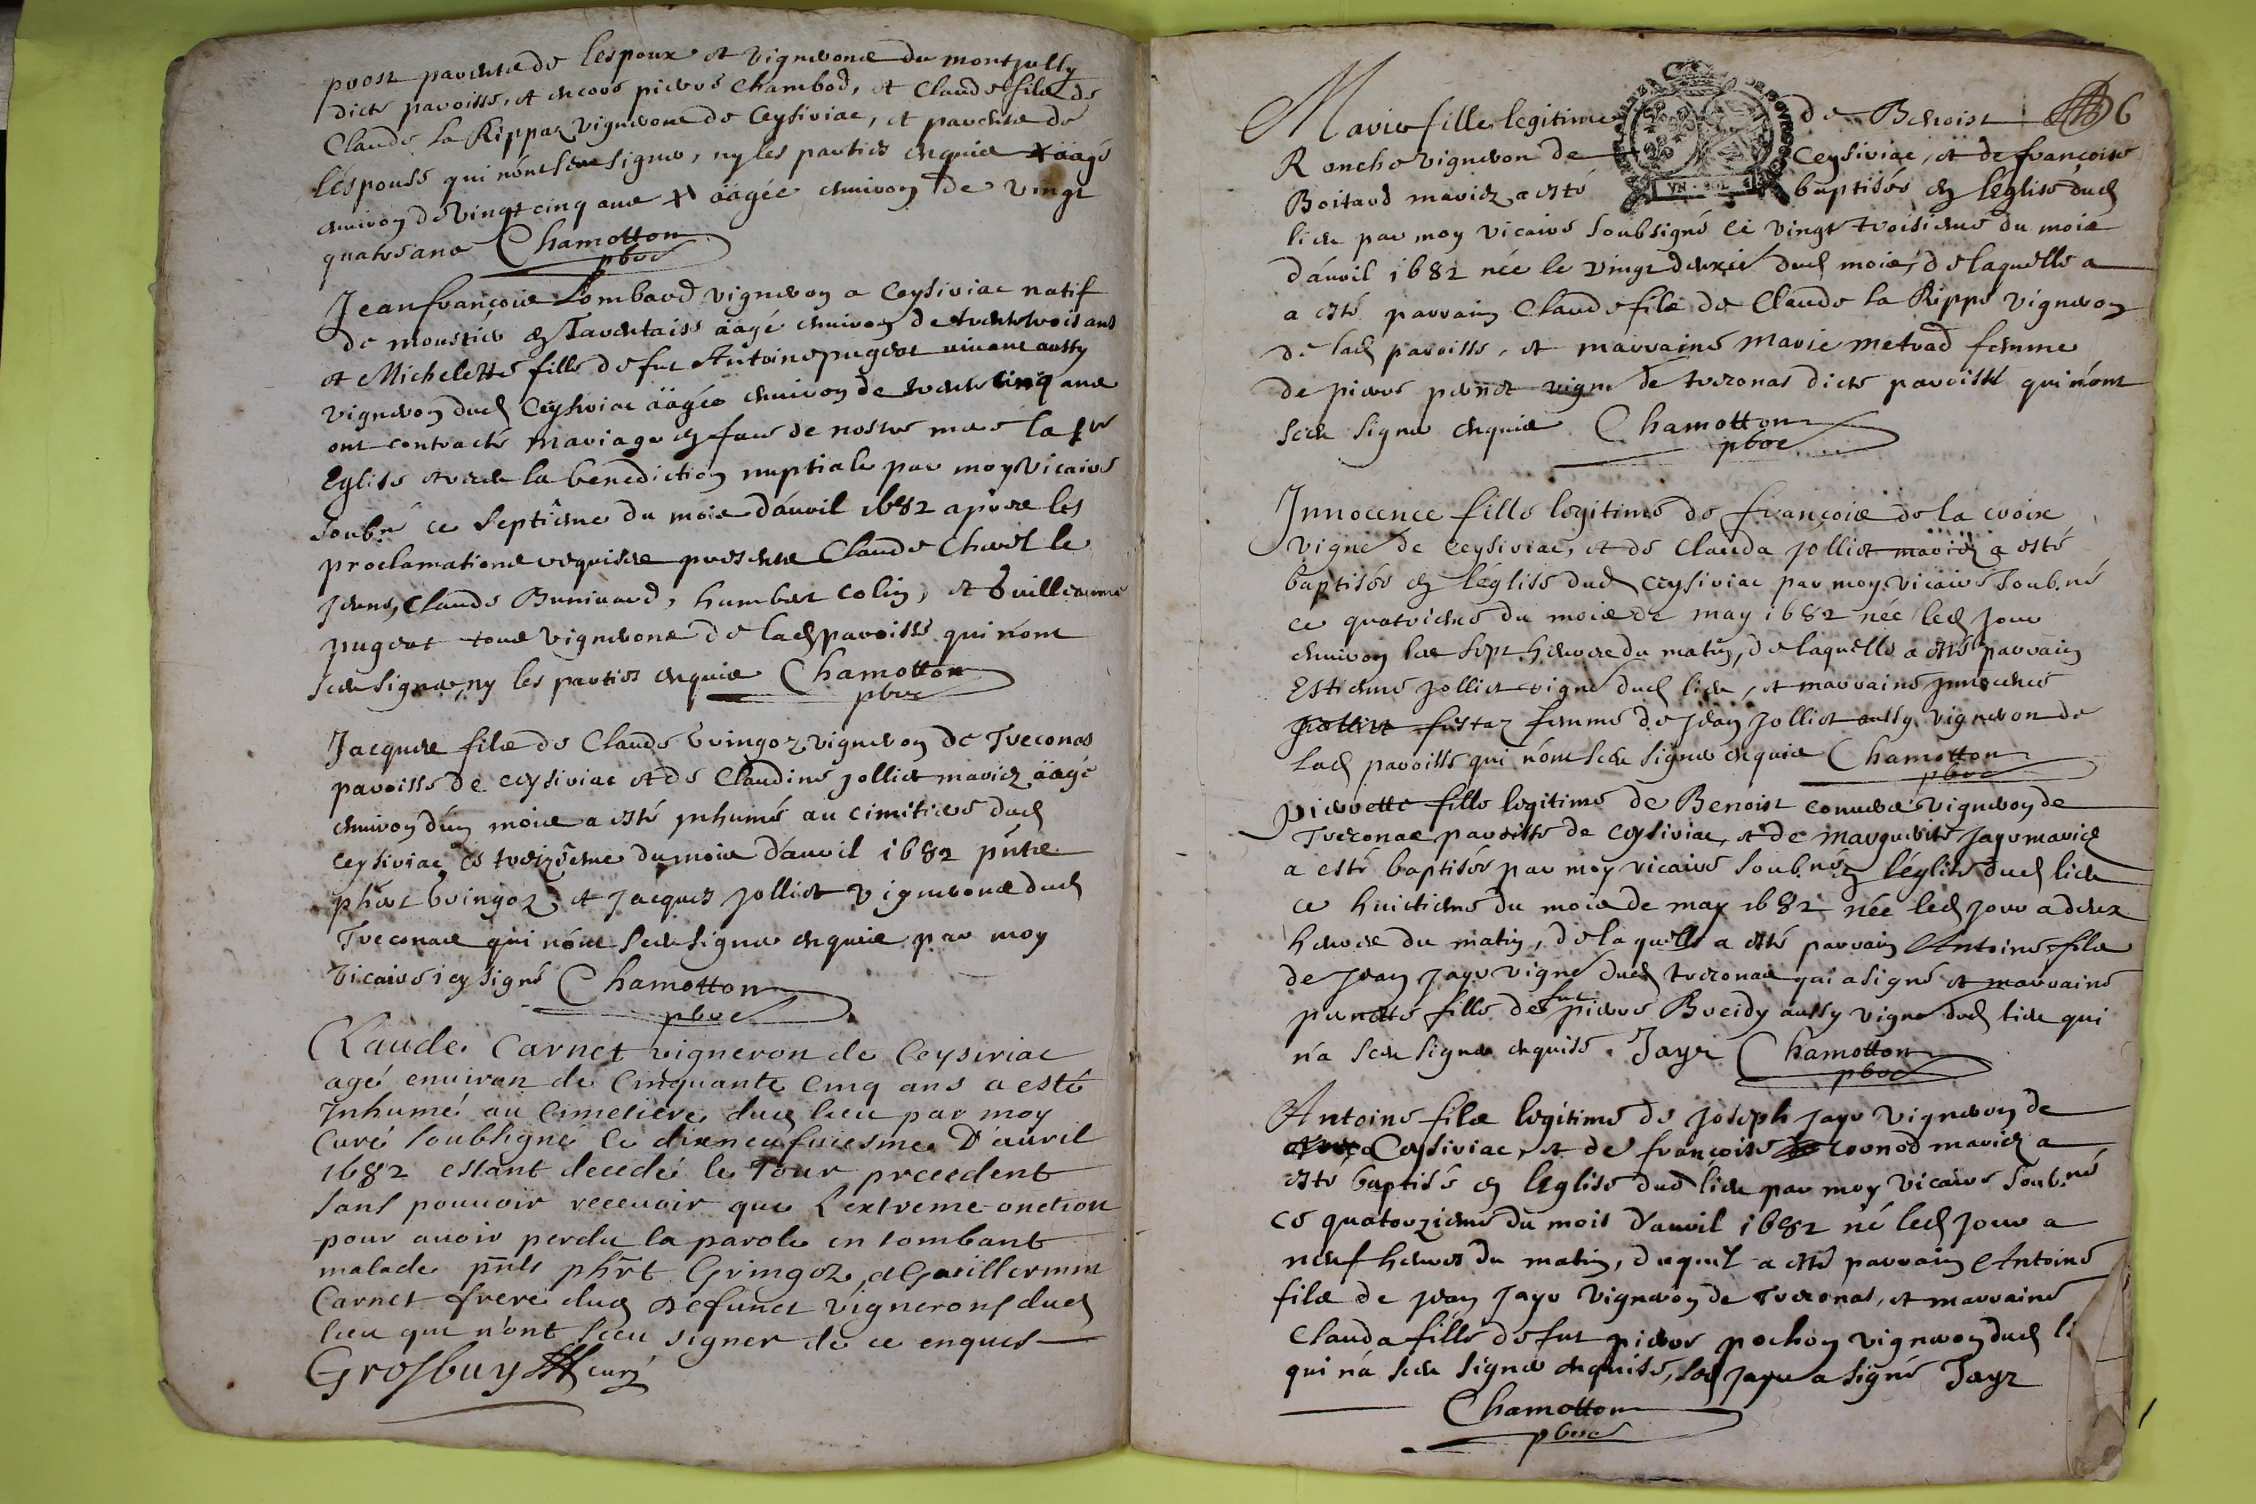 parents de lespoux et vignerons du montjully
dicte paroisse, et encore pierre Chambod, et Claude fils de
Claude la Rippaz vigneron de Ceysiriac, et parents de
l'espouse qui n'ont sceu signer, ny les parties enquis aagé
environ de vingt cinq ans aagée environ de vingt
quatre ans Chamotton
pbre
Jeanfrançois Lombard vigneron a Ceysiriac natif
de moustier en Tarentaise aagé environ de trente trois ans
et Michelette fille de fut Antoine pugeat vivant aussy
vigneron dud Ceysiriac aagée environ de trente cinq ans
ont contracté mariage en face de nostre mere la ste
Eglise et receu la benediction nuptiale par moy Vicaire
soub.né ce septieme du mois d'avril 1682 apres les
proclamations requises presents Claude Chevel le
jeune, Claude Brunivard, humbert colin, et Guillaume
pugeat tous vignerons de lad paroisse qui n'ont
sceu signer, ny les parties enquis Chamotton
pbre
Jacques fils de Claude Gringoz vigneron de Treconas
paroisse de ceysiriac et de Claudine jolliet mariez aagé
environ d'un mois a esté inhumé au cimitiere dud
ceysiriac ce treizieme du mois d'avril 1682 pnts
phbert Gringoz et Jacques jolliet vignerons dud
Treconas qui n'ont sceu signer enquis par moy
vicaire icy signé Chamotton
pbre
Claude Carnet vigneron de Ceysiriac
agé environ de Cinquante Cinq ans a esté
Inhumé au Cimetiere dud lieu par moy
Curé soubsigné le dixneufuiesme D'auril
1682 estant decedé le Jour precedent
sans pouuoir receuoir que L'extreme onction
pour auoir perdu la parole en tombant
malade pnts phbrt Gringoz, et Guillermin
Carnet frere dud Defunct vignerons dud
lieu qui n'ont sceu signer de ce enquis
Grosbuy curé
6
Marie fille legitime de Benoist
Ronche vigneron de Ceysiriac, et de françoise
Boitard mariez a esté baptisée en leglise dud
lieu par moy vicaire soubsigné ce vingt troisieme du mois
d'avril 1682 née le vingt deuxie dud mois, de laquelle a
a esté parrain Claude fils de Claude la Rippe vigneron
de lad paroisse, et marraine Marie metrad femme
de pierre pernet vigne de treconas dicte paroisse qui n'ont
sceu signer enquis Chamotton
pbre
Innocence fille legitime de françois de la croix
vigne de ceysiriac, et de Clauda jolliet mariez a esté
baptisée en l'église dud ceysiriac par moy vicaire soub.né
ce quatrieme du mois de may 1682 née led jour
environ les sept heures du matin, de laquelle a esté parrain
Estienne jolliet vigne dud lieu, et marraine innocence
fustaz femme de jean jolliet aussy vigneron de
lad paroisse qui n'ont sceu signer enquis Chamotton
pbre
pierrette fille legitime de Benoist convert vigneron de
Treconas paroisse de ceysiriac et de marguerite jayr mariez
a esté baptisée par moy vicaire soub.né en l'église dud lieu
ce huictieme du mois de may 1682 née led jour a deux
heures du matin, de laquelle a esté parrain Antoine fils
de jean jayr vigne dud treconas qui a signé et marraine
pernette fille de fut pierre Breidy aussy vigne dud lieu qui
n'a sceu signer enquise. Jayr Chamotton
pbre
Antoine fils legitime de joseph jayr vigneron de
Ceysiriac, et de françoise cornod mariez a
esté baptisé en leglise dud lieu par moy vicaire soub.né
ce quatorzieme du mois d'avril 1682 né led jour a
neuf heures du matin, duquel a esté parrain Antoine
fils de jean jayr vigneron de Treconas, et marraine
Clauda fille de fut pierre pochon vigneron dud li
qui n'a sceu signer enquise, led jayr a signé Jayr
Chamotton
pbre